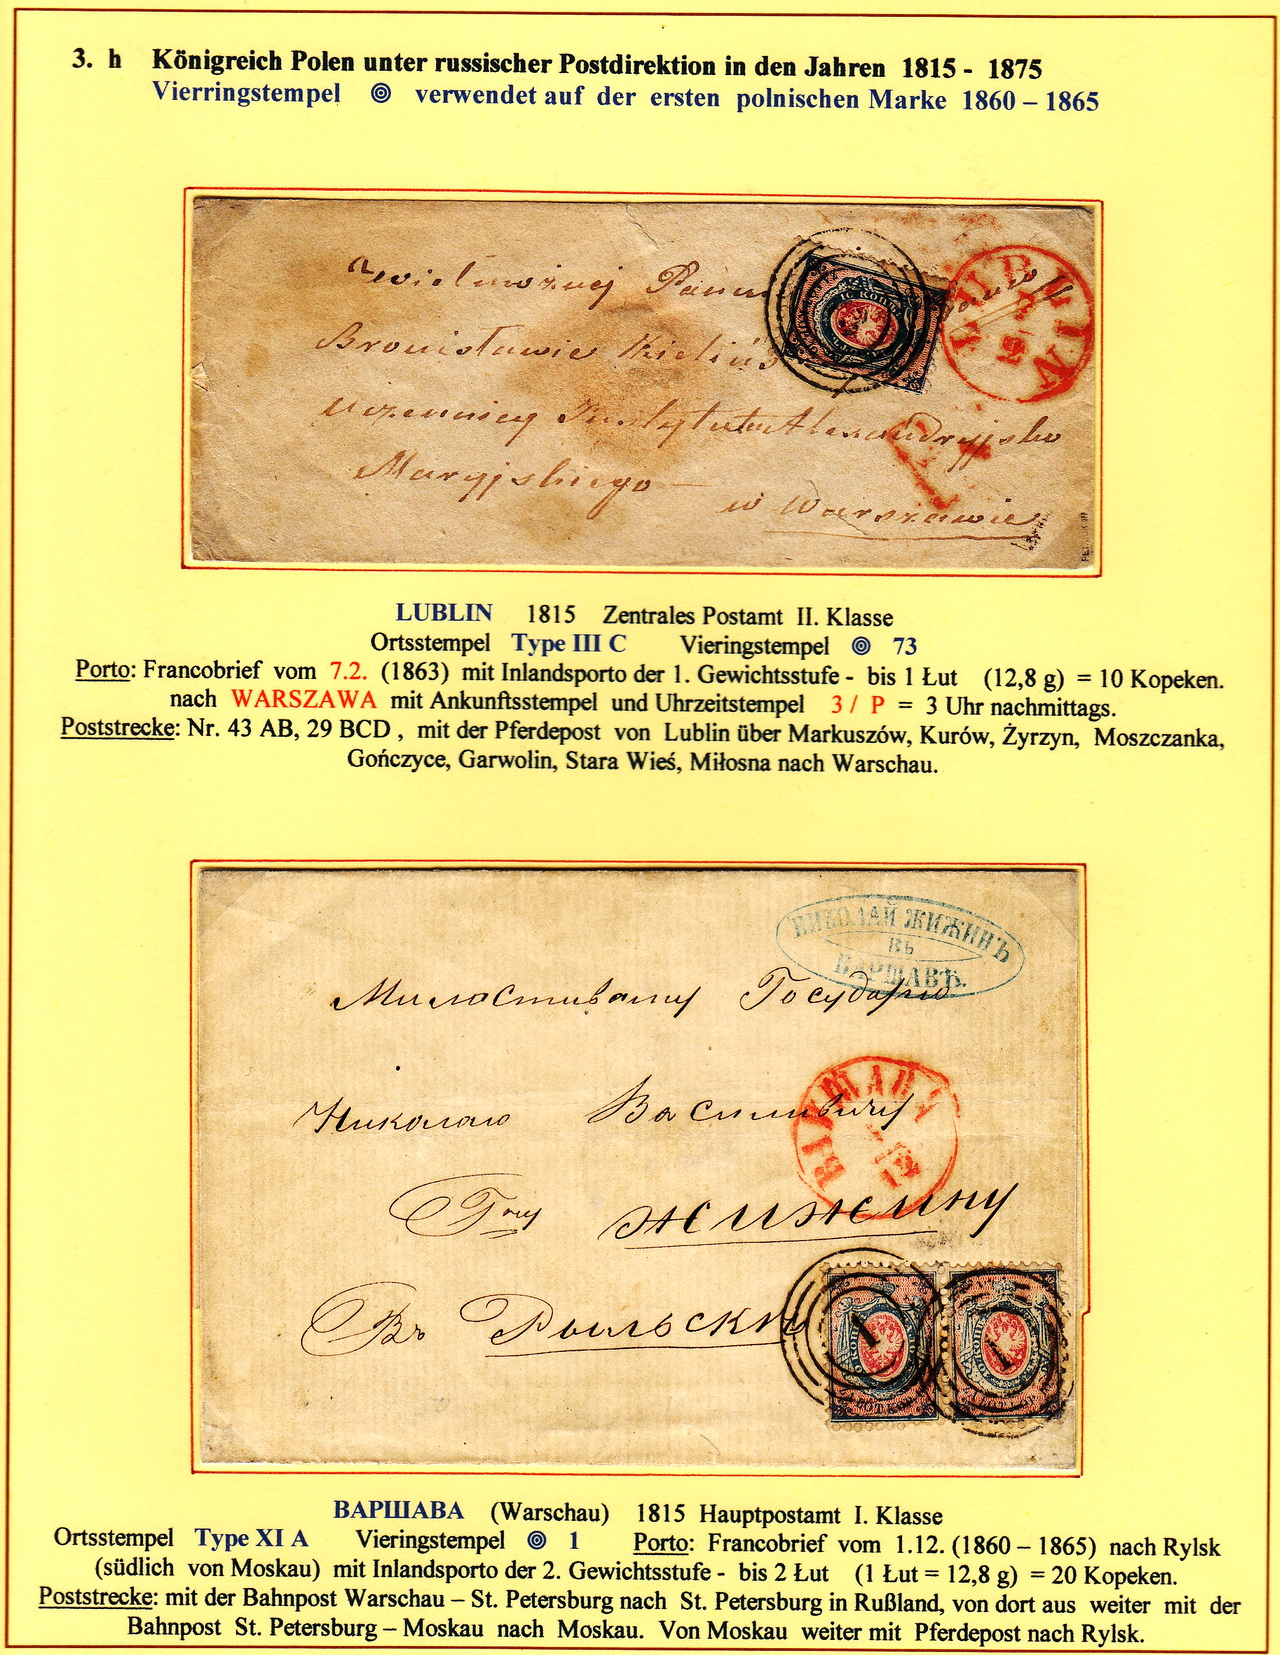 3. h Königreich Polen unter russischer Postdirektion in den Jahren 1815 - 1875
Vierringstempel verwendet auf der ersten polnischen Marke 1860 – 1865
Wielmożnej Pannie
LUBLIN
Bronisławie
10 КОП
Uczennicy Instytutu Alexandryjsko
Maryjskiego —
w Warszawie
LUBLIN 1815 Zentrales Postamt II. Klasse
Ortsstempel Type III C Vieringstempel 73
Porto: Francobrief vom 7.2. (1863) mit Inlandsporto der 1. Gewichtsstufe - bis 1 Łut (12,8 g) = 10 Kopeken.
nach WARSZAWA mit Ankunftsstempel und Uhrzeitstempel 3 / P = 3 Uhr nachmittags.
Poststrecke: Nr. 43 AB, 29 BCD , mit der Pferdepost von Lublin über Markuszów, Kurów, Żyrzyn, Moszczanka,
Gończyce, Garwolin, Stara Wieś, Miłosna nach Warschau.
НИКОЛАЙ ЖИЖИНЪ
ВЪ
ВАРШАВѢ.
Милостивому Государю
ВАРШАВА
Николаю Васильевичу
Жижину
Въ Рыльскъ
1
1
ВАРШАВА (Warschau) 1815 Hauptpostamt I. Klasse
Ortsstempel Type XI A Vieringstempel 1 Porto: Francobrief vom 1.12. (1860 – 1865) nach Rylsk
(südlich von Moskau) mit Inlandsporto der 2. Gewichtsstufe - bis 2 Łut (1 Łut = 12,8 g) = 20 Kopeken.
Poststrecke: mit der Bahnpost Warschau – St. Petersburg nach St. Petersburg in Rußland, von dort aus weiter mit der
Bahnpost St. Petersburg – Moskau nach Moskau. Von Moskau weiter mit Pferdepost nach Rylsk.